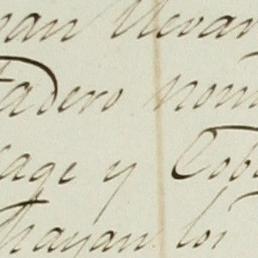 han llevar
tadero nom
age y Cob
hayan los